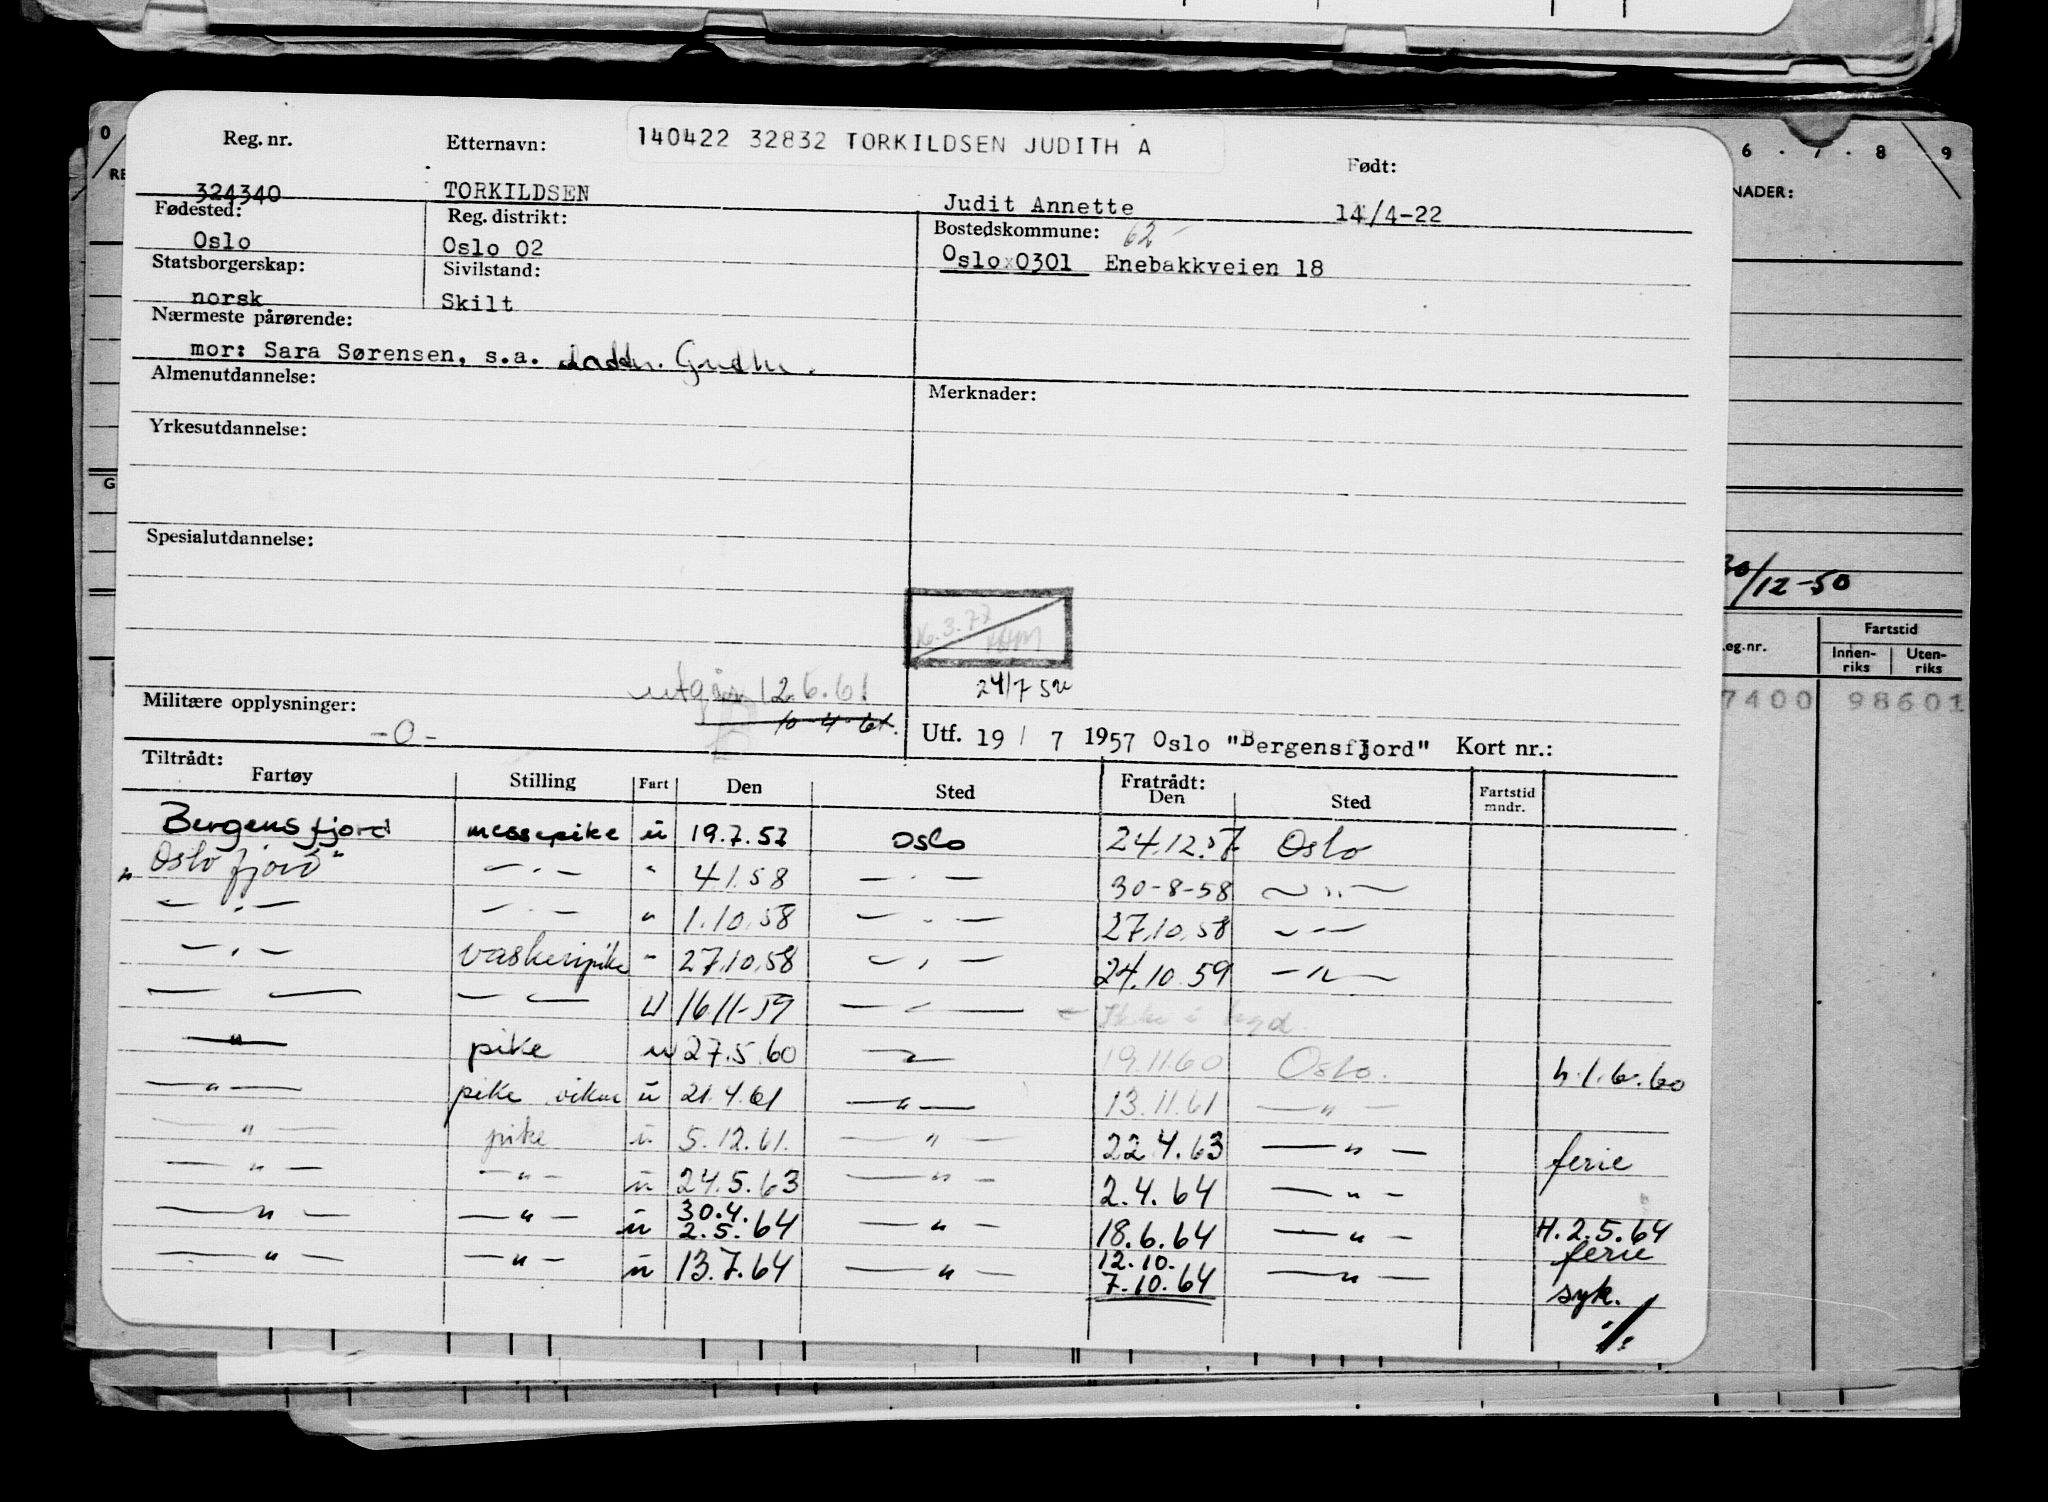 140422 32832 TORKILDSEN JUDITH A
Reg. nr. Etternavn: Født:
324340 TORKILDSEN Judit Annette 14/4-22
Fødested: Reg. distrikt: Bostedskommune: 62
Oslo Oslo 02 Oslo x0301 Enebakkveien 18
Statsborgerskap: Sivilstand:
norsk Skilt
Nærmeste pårørende:
mor: Sara Sørensen, s.a.
Almenutdannelse: Merknader:
Yrkesutdannelse:
Spesialutdannelse:
16.3.77
utgår 12.6.61 24/7 50
Militære opplysninger: 10-4-61.
-0- Utf. 19 / 7 1957 Oslo "Bergensfjord" Kort nr.:
Tiltrådt: Fratrådt:
Fartøy Stilling Fart Den Sted Den Sted Fartstid mndr.
Bergensfjord messepike u 19.7.57 oslo 24.12.57 Oslo
"Oslofjord" — . — " 4.1.58 — . — 30-8-58 — " —
— . — — . — " 1.10.58 — . — 27.10.58 — " —
— . — vaskeripike " 27.10.58 — . — 24.10.59 — " —
— — — — U 16.11-59 — —
— " — pike u 27.5.60 — " — 19.11.60 Oslo. h.1.6.60
— " — pike vikar u 21.4.61 — " — 13.11.61 — " —
— " — pike u 5.12.61. — " — 22.4.63 — " — ferie
— " — — " — u 24.5.63 — " — 2.4.64 — " —
— " — — " — u 30.4. 2.5.64 — " — 18.6.64 — " — H.2.5.64 ferie
— " — — " — u 13.7.64 — " — 12.10. 7.10.64 — " — syk.
./.
0
6 . 7 . 8 9
NADER:
G
30/12-50
eg.nr. Fartstid
Innen-riks Uten-riks
7400 98601